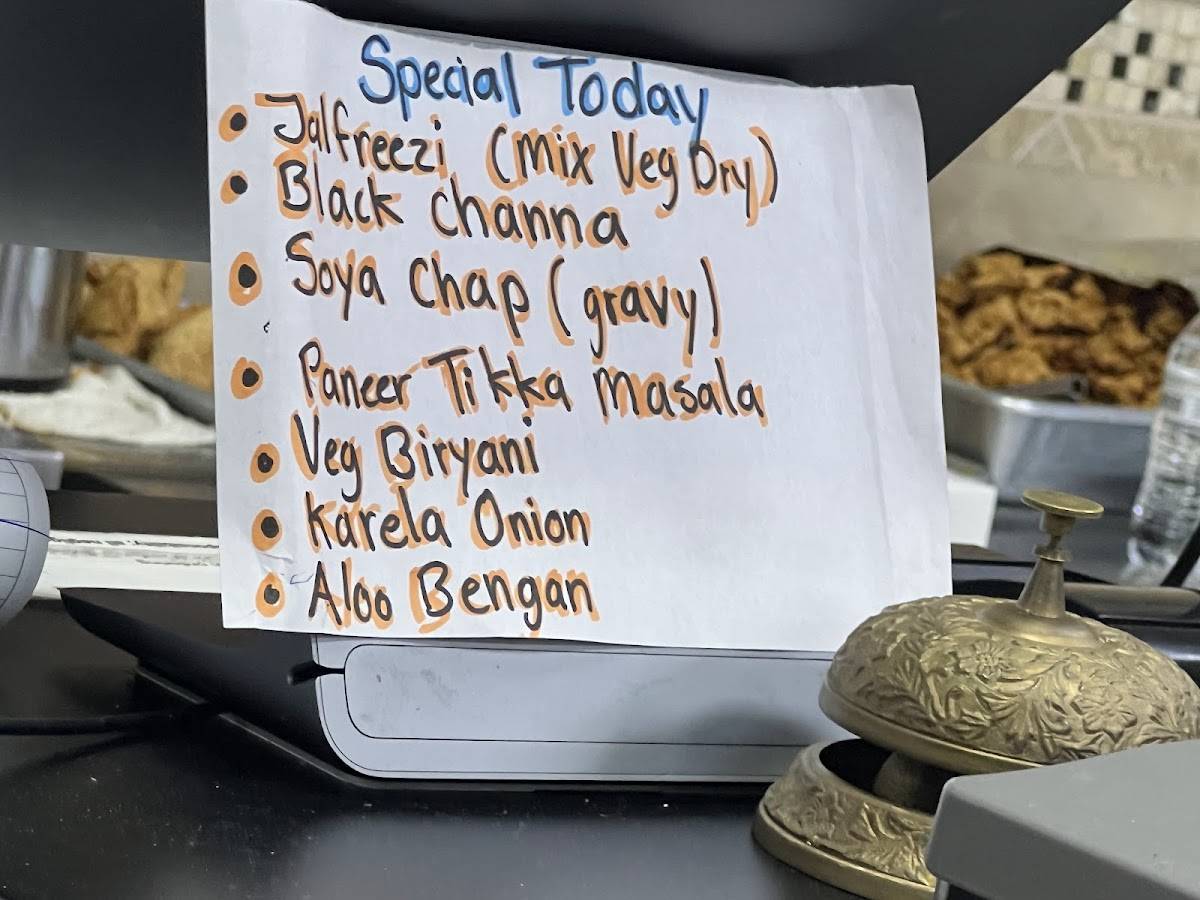 Special Today
• Jalfreezi (Mix Veg Dry)
• Black Channa
• Soya Chap (gravy)
• Paneer Tikka Masala
• Veg Biryani
• Karela Onion
• Aloo Bengan